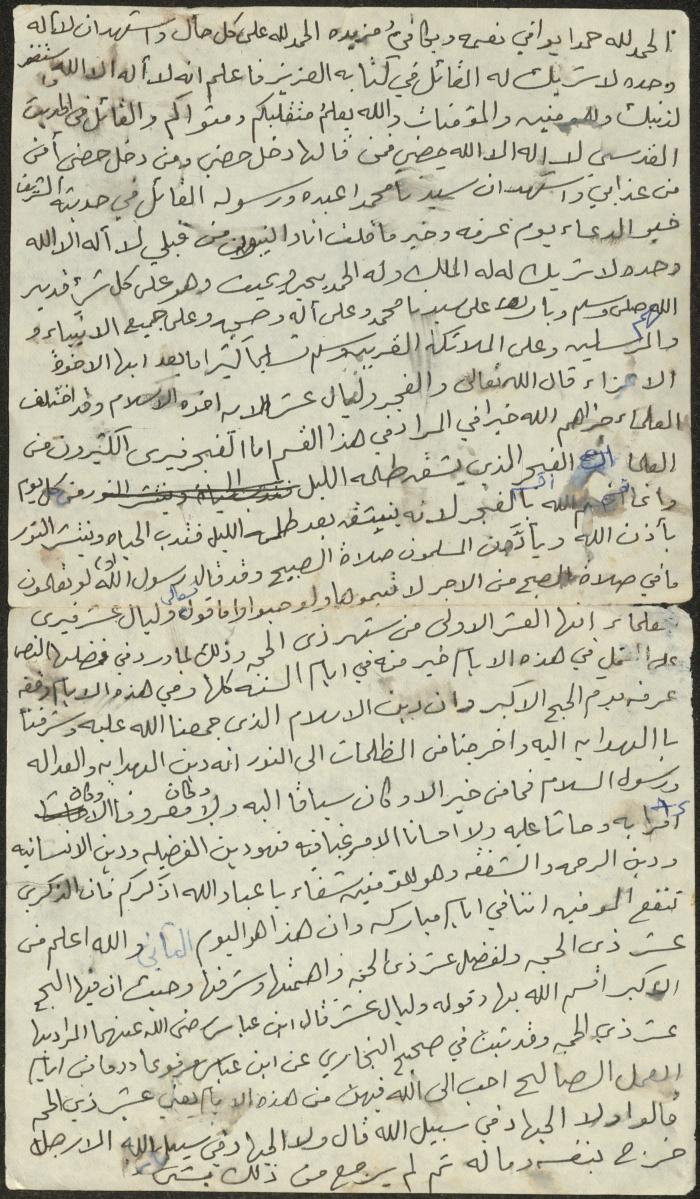 الحمد لله حمدا يوافي نعمه ويكافيء مزيده الحمد لله على كل حال واشهد ان لا اله
وحده لا شريك له القائل في كتابه العزيز فاعلم انه لا اله الا الله واستغفر
لذنبك وللمومنين والمؤمنات والله يعلم متقلبكم ومثواكم والقائل في الحديث
القدسي لا اله الا الله حصني فمن قالها دخل حصني ومن دخل حصني أمن
من عذابي واشهد ان سيدنا محمدا عبده ورسوله القائل في حديثه الشريف
خير الدعاء يوم عرفه وخير ما قلت انا والنبيون من قبلي لا اله الا الله
وحده لا شريك له له الملك وله الحمد يحي ويميت وهو على كل شيء قدير
اللهم صلي وسلم وبارك على سيدنا محمد وعلى أله وصحبه وعلى جميع الانبياء و
والمرسلين وعلى الملائكة المقربين وسلم تسليما كثيرا اما بعد ايها الاخوة
الاعزاء قال الله تعالى والفجر وليال عشر الايه اخوه الاسلام وقد اختلف
العلماء جزاهم الله خيرا في المراد في هذا القسم اما الفجر فيرى الكثيرون من
العلما انه الفجر الذي يشق ظلمه الليل فتدب الحياة وينتشر النور من كل يوم
وانما اقسم الله بالفجر لانه ينبثق بعد ظلمه الليل فتدب الحياه وينتشر النور
بأذن الله ويأذن المسلمون صلاة الصبح وقد قال رسول الله لو تعلمون
ما في صلاة الصبح من الاجر لاتيتموها ولو حبوا واما قوله تعالى وليال عشر فيرى
العلماء انها العشر الاولى من شهر ذي الحجه وذلك لما ورد في فضلها النص
على العمل في هذه الايام خير منه في ايام السنه كلها وهي هذه الايام وقفه
عرفه يوم الحج الاكبر وان دين الاسلام الذي جمعنا الله عليه وشرفنا
بالهدايه اليه واخرجنا من الظلمات الى النور انه دين الهدايه والعداله
ورسوله السلام فما من خير الا وكان سباقا اليه ولا معروفا الا وكان
امرا به وحاثا عليه ولا احسانا الا مرغبا فيه فهو دين الفضيله ودين الانسانيه
ودين الرحمه والشفقه وهو للمؤمنين شفاء يا عباد الله اذكركم فان الذكرى
تنفع المومنين اننا في ايام مباركه وان هذا هو اليوم الثاني والله اعلم من
عشر ذي الحجه ولفضل عشر ذي الحجه واهميتها وشرفها وحيث ان فيها الحج
الاكبر اقسم الله بها وقوله وليال عشر قال ابن عباس رضي الله عنهما المراد بها
عشر ذي الحجه وقد ثبت في صحيح البخاري عن ابن عباس مرفوعا ما من ايام
العمل الصالح احب الى الله فيهن من هذه الايام يعني عشر ذي الحجه
قالوا ولا الجهاد في سبيل الله قال ولا الجهاد في سبيل الله الا رجل
خرج بنفسه وماله ثم لم يرجع من ذلك بشيء